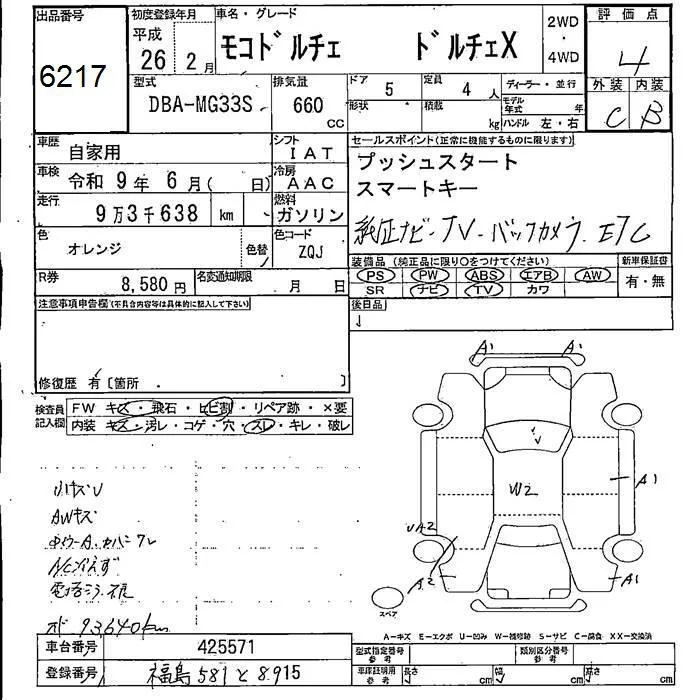 出品番号 初度登録年月 車名・グレード 評価点
6217
平成
26 2月
モコドルチェ ドルチェX
2WD
・
4WD
4
型式 排気量 ドア 定員 ディーラー・並行 外装 内装
DBA-MG33S 660 CC 5 4人
形状 積載 kg モデル年式 年
ハンドル 左・右
C B
車歴 自家用 シフト IAT
セールスポイント(正常に機能するものに限ります)
車検 令和 9年 6月( 日) 冷房 AAC
プッシュスタート
スマートキー
走行 9万3千638 km 燃料 ガソリン
純正ナビ・TV・バックカメラ. ETC
色 オレンジ 色替 カラーコード ZQJ
装備品 (純正品に限り○をつけてください) 新車保証書
PS PW ABS エアB AW 有・無
SR ナビ TV カワ
R券 8,580円 名変通知期限 月 日
後日品
注意事項申告欄(不具合内容等は具体的に記入して下さい)
修復歴 有〔箇所 〕
検査員記入欄
FW キズ・飛石・ヒビ割・リペア跡・×要
内装 キズ・汚レ・コゲ・穴・スレ・キレ・破レ
小キズU
AWキズ
A1
A1
U
W2
A1
UA2
A2
A1
オド 93640km
スペア
A―キズ E―エクボ U―凹み W―補修跡 S―サビ C―腐食 XX―交換済
車台番号 425571
型式指定番号 参考 類別区分番号 参考
登録番号 福島 581 と 8915
車庫証明用 参考 長さ cm 幅 cm 高さ cm